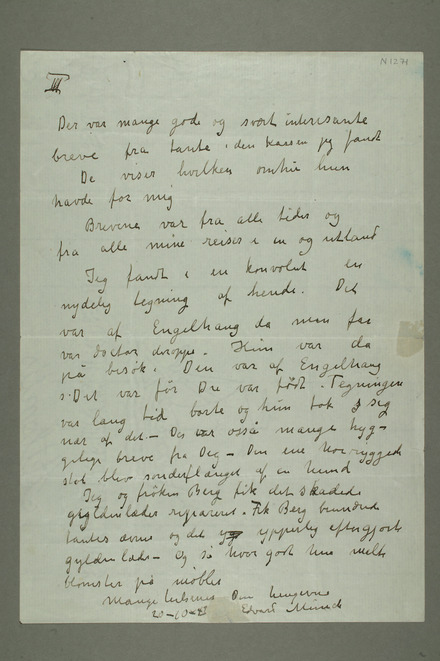 N 1271
III
Der var mange gode og svært interesante
breve fra tante i den kassen jeg fandt
De viser hvilken omhu hun
havde for mig
Brevene var fra alle tider og
fra alle mine reiser i in og utland
Jeg fandt i en konvolut en
nydelig tegning af hende. Det
var af Engelhaug da min far
var doctor droppe. Hun var da
på besøk. Den var af Engelhaug
s. Det var før Du var født. Tegningen
var lang tid borte og hun tok sig
nær af det – Der var også mange hyg-
gelige breve fra Deg – Den ene høiryggede
stol blev sønderflænget af en hund
Jeg og frøken Berg fik det skadede
gyldenlæder repareret. Frk Berg beundrede
tantes ævne og det ypperlig eftergjorte
gyldenlæder – Og så hvor godt hun malte
blomster på møbler
Mange hilsener Din hengivne
20-10- Edvard Munch